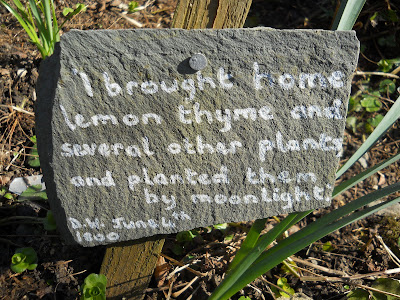 I brought home
lemon thyme and
several other plants
and planted them
by moonlight.
D.W. June
1800